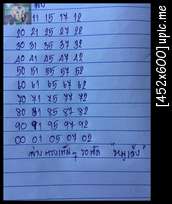 11 15 17 12
20 21 25 27 22
30 31 35 37 32
40 41 45 47 42
50 51 55 57 52
60 61 65 67 62
70 71 75 77 72
80 81 85 87 82
90 91 95 97 92
00 01 05 07 02
[452x600] upic.me